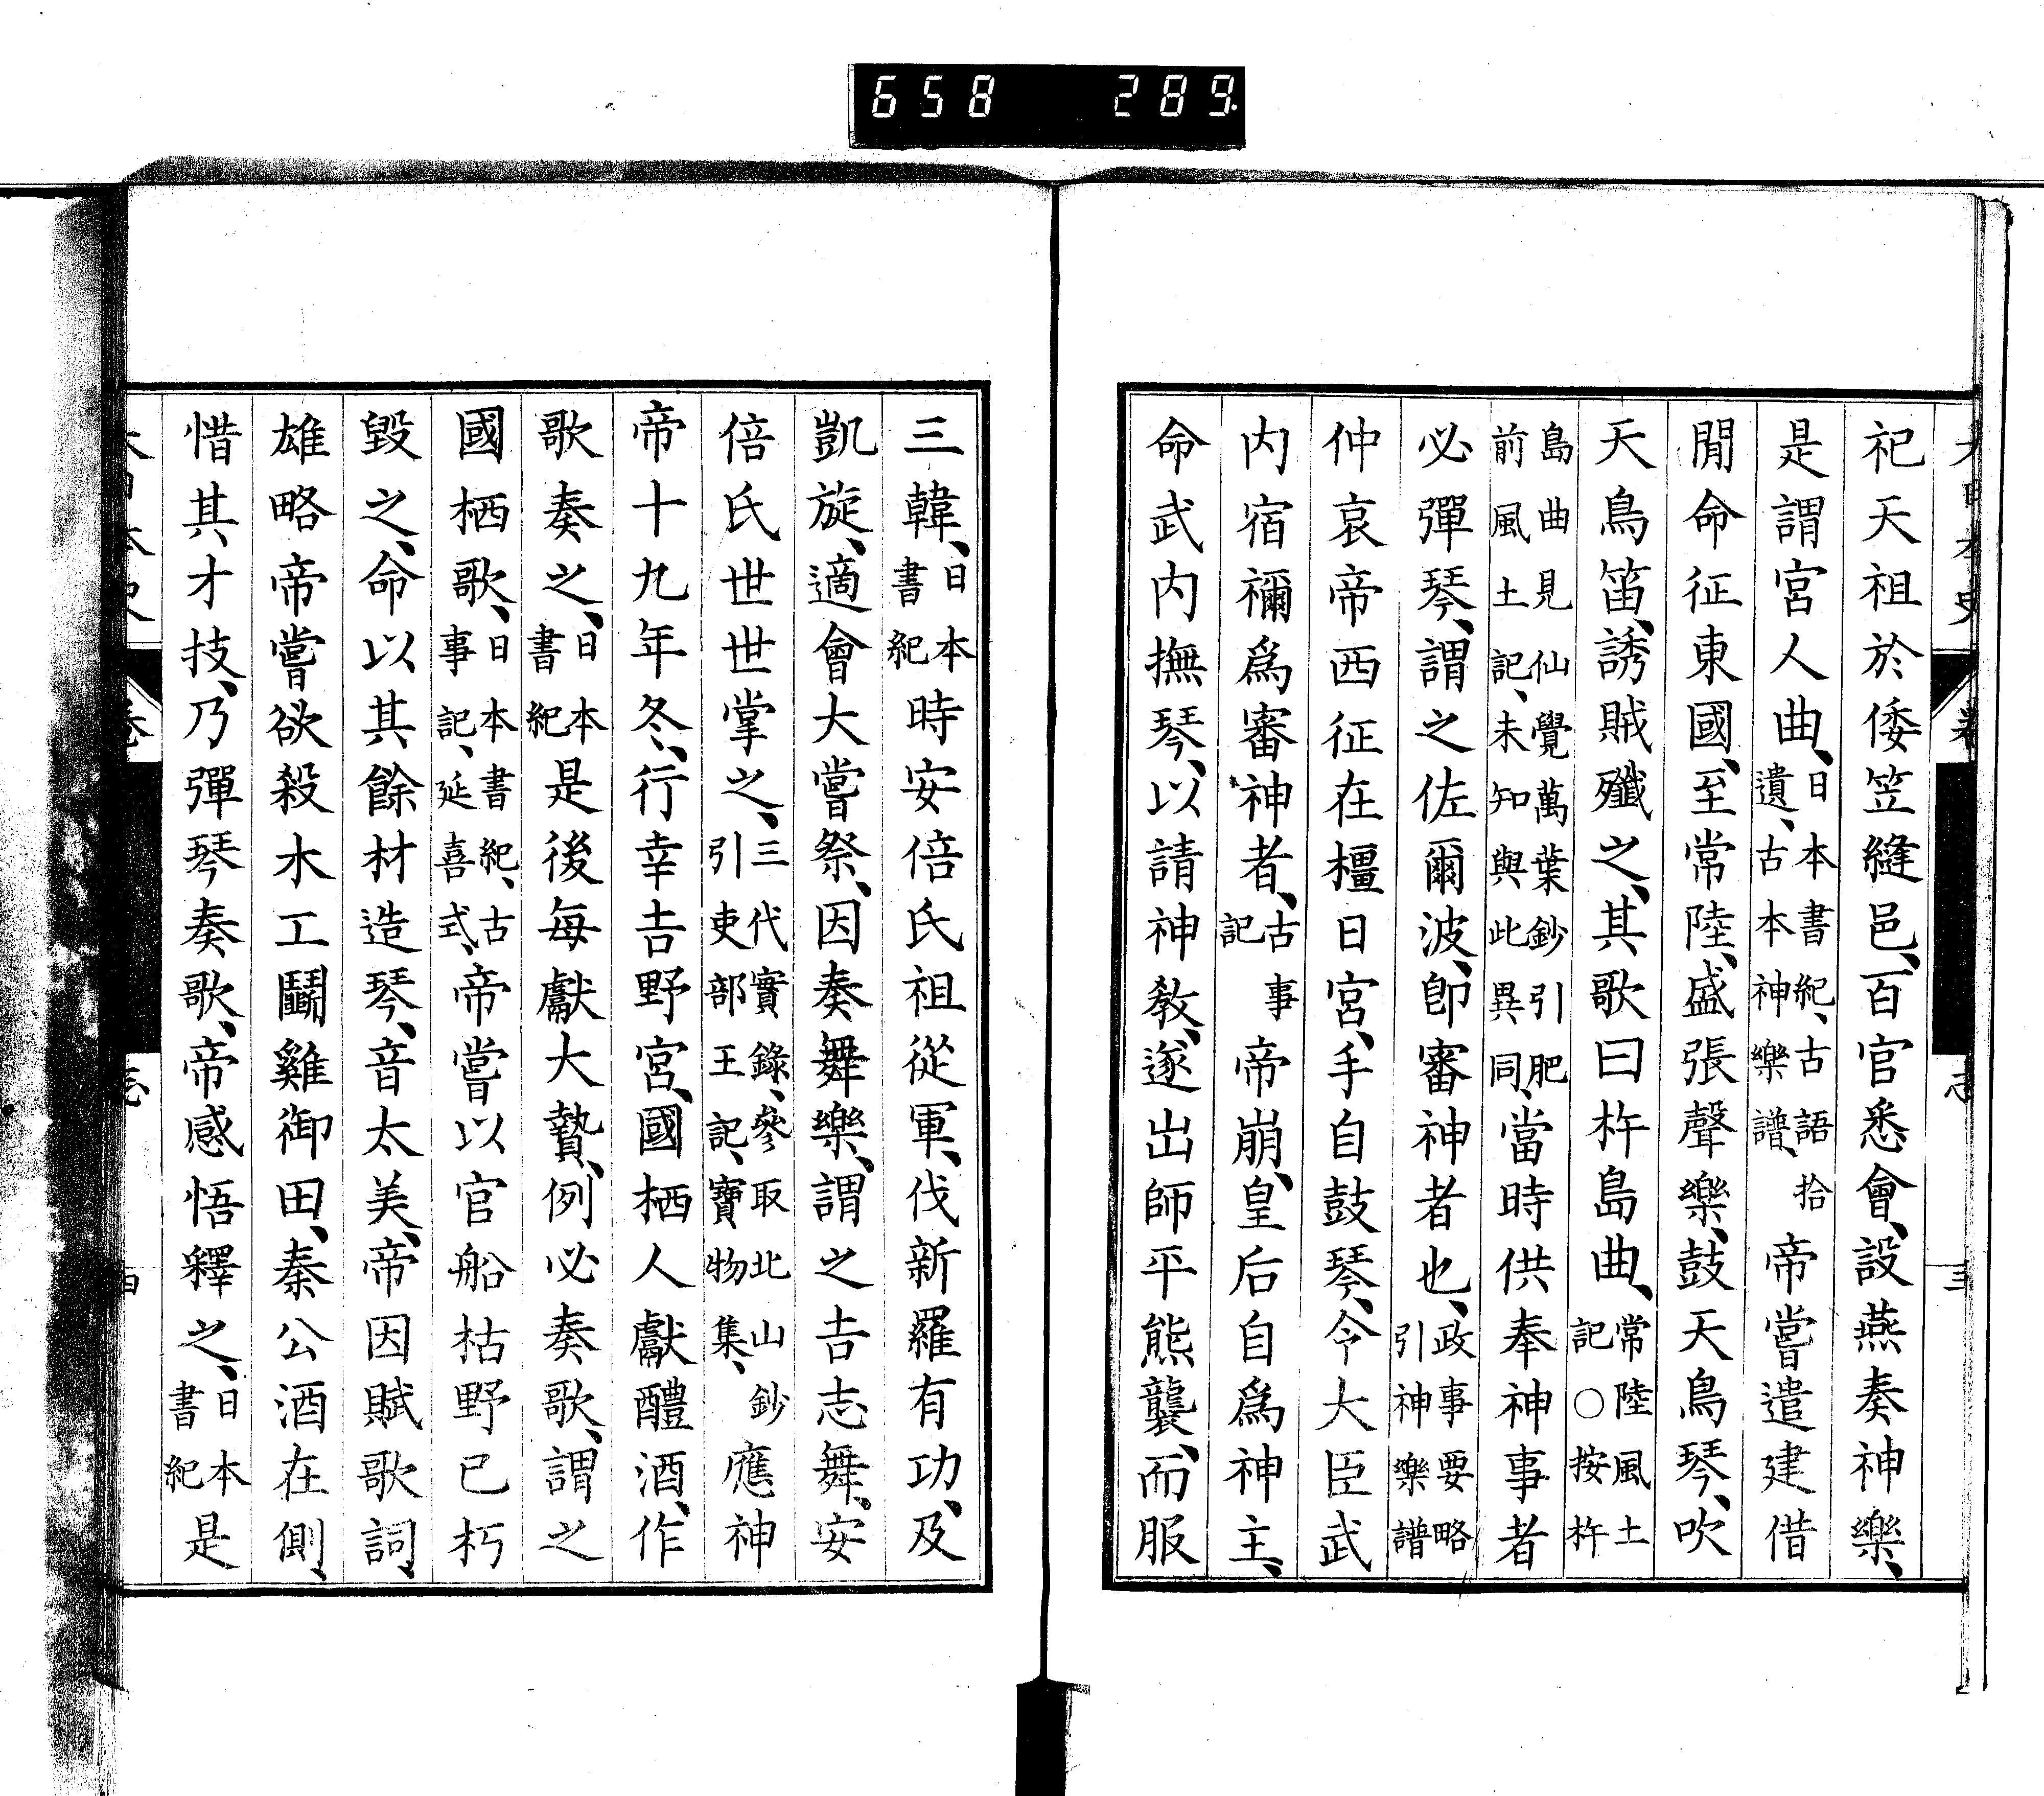 658 289
祀天祖於倭笠縫邑、百官悉會、設燕奏神樂、
是謂宮人曲、日本書紀、古語拾遺、古本神樂譜、帝嘗遣建借
間命征東國、至常陸、盛張聲樂、鼓天鳥琴、吹
天鳥笛、誘賊殲之、其歌曰杵島曲、常陸風土記○按杵
島曲見仙覺萬葉鈔引肥前風土記、未知與此異同、當時供奉神事者
必彈琴、謂之佐爾波、卽審神者也、政事要略引神樂譜
仲哀帝西征在橿日宮、手自鼓琴、令大臣武
内宿禰爲審神者、古事記帝崩、皇后自爲神主、
命武内撫琴、以請神敎、遂出師平熊襲、而服
三韓、日本書紀時安倍氏祖從軍、伐新羅有功、及
凱旋、適會大嘗祭、因奏舞樂、謂之吉志舞、安
倍氏世世掌之、三代實錄、參取北山鈔引吏部王記、寶物集、應神
帝十九年冬、行幸吉野宮、國栖人獻醴酒、作
歌奏之、日本書紀是後每獻大贄、例必奏歌、謂之
國栖歌、日本書紀、古事記、延喜式、帝嘗以官船枯野已朽
毀之、命以其餘材造琴、音太美、帝因賦歌詞、
雄略帝嘗欲殺木工鬭雞御田、秦公酒在側、
惜其才技、乃彈琴奏歌、帝感悟釋之、日本書紀是